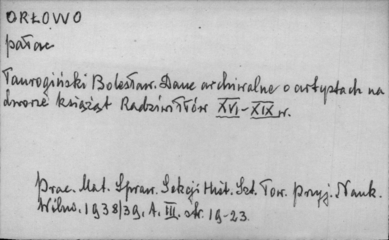 ORŁOWO
pałac
Taurogiński Bolesław. Dane archiwalne o artystach na
dworze książąt Radziwiłłów XVI-XIX w.
Prac. Mat. Spraw. Sekcji Hist. Szt. Tow. Przyj. Nauk.
Wilno. 1938/39. t. III. str. 19-23.